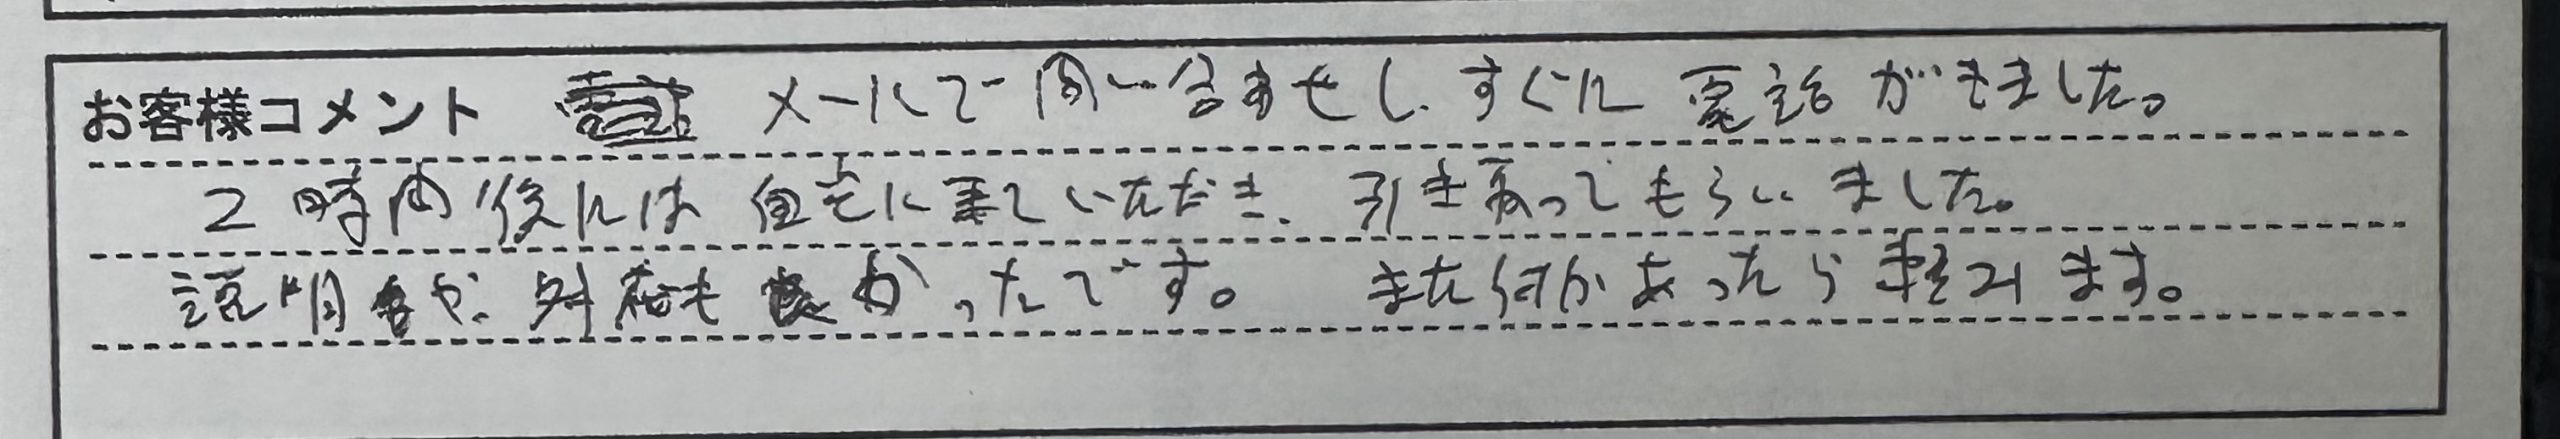 お客様コメント メールで問い合ませし、すぐに電話がきました。
2時間後には自宅に来ていただき、引き取ってもらいました。
説明や、対応も良かったです。 また何かあったら頼みます。